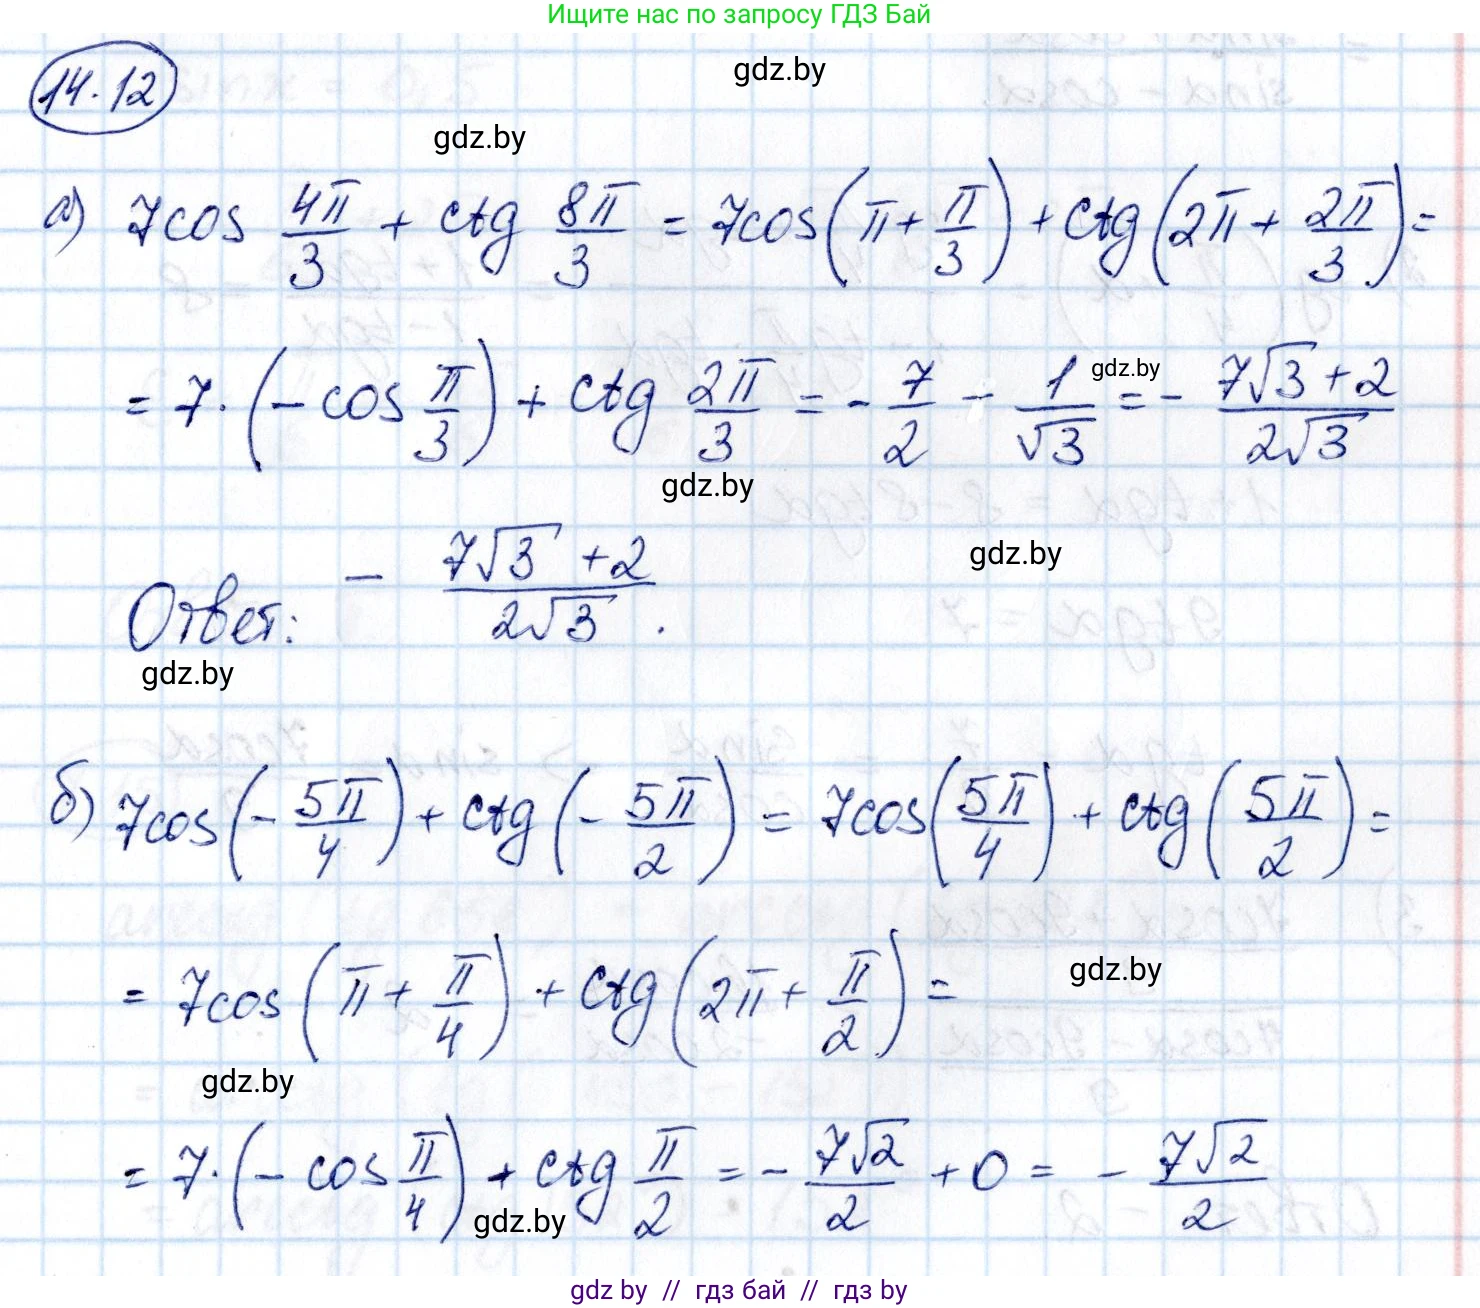 Ищите нас по запросу ГДЗ Бай
14.12
gdz.by
gdz.by
а) 7cos 4π/3 + ctg 8π/3 = 7cos(π + π/3) + ctg(2π + 2π/3) =
= 7·(-cos π/3) + ctg 2π/3 = -7/2 - 1/√3 = - (7√3 + 2)/(2√3)
gdz.by
gdz.by
gdz.by
Ответ: - (7√3 + 2)/(2√3).
gdz.by
б) 7cos(-5π/4) + ctg(-5π/2) = 7cos(5π/4) + ctg(5π/2) =
= 7cos(π + π/4) + ctg(2π + π/2) =
gdz.by
gdz.by
= 7·(-cos π/4) + ctg π/2 = - 7√2/2 + 0 = - 7√2/2
gdz.by
gdz by // гдз бай // гдз by